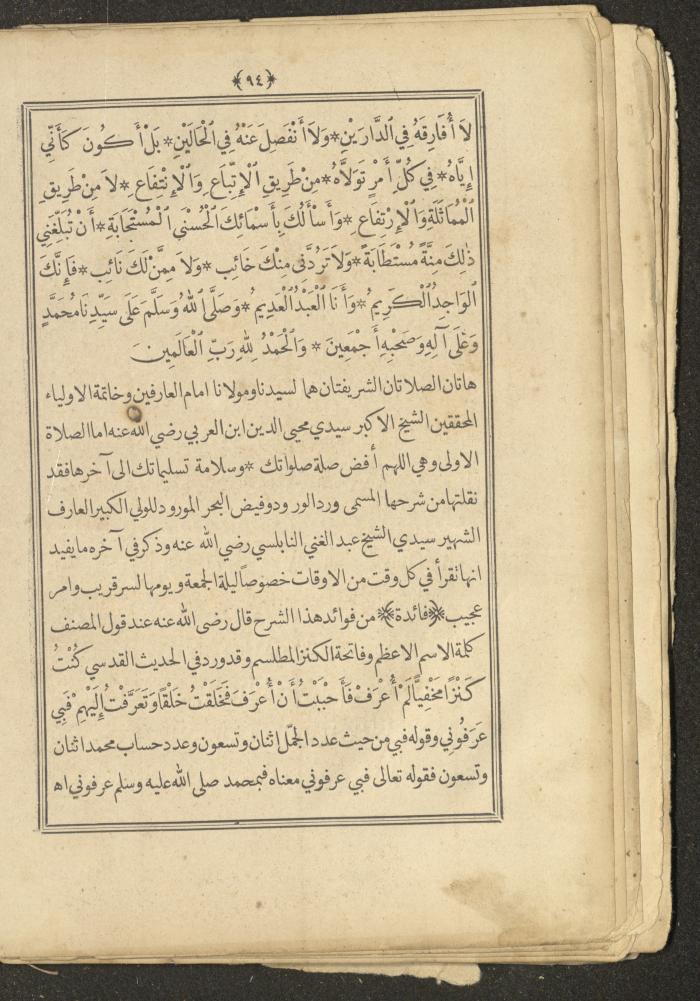 ﴿٩٤﴾
لاَ أُفَارِقَهُ فِي ٱلدَّارَيْنِ * وَلاَ أَنْفَصِلَ عَنْهُ فِي ٱلْحَالَيْنِ * بَلْ أَكُونَ كَأَنِّي
إِيَّاهُ * فِي كُلِّ أَمْرٍ تَوَلاَّهُ * مِنْ طَرِيقِ ٱلْاِتِّبَاعِ وَٱلْاِنْتِفَاعِ * لاَ مِنْ طَرِيقِ
ٱلْمُمَاثَلَةِ وَٱلْاِرْتِفَاعِ * وَأَسْأَلُكَ بِأَسْمَائِكَ ٱلْحُسْنَى ٱلْمُسْتَجَابَةِ * أَنْ تُبَلِّغَنِي
ذٰلِكَ مِنَّةً مُسْتَطَابَةً * وَلاَ تَرُدَّنِي مِنْكَ خَائِب * وَلاَ مِمَّنْ لَكَ نَائِب * فَإِنَّكَ
ٱلْوَاجِدُ ٱلْكَرِيمُ * وَأَنَا ٱلْعَبْدُ ٱلْعَدِيمُ * وَصَلَّى ٱللهُ وَسَلَّمَ عَلَى سَيِّدِنَا مُحَمَّدٍ
وَعَلَى آلِهِ وَصَحْبِهِ أَجْمَعِينَ * وَٱلْحَمْدُ لِلهِ رَبِّ ٱلْعَالَمِينَ
هاتان الصلاتان الشريفتان هما لسيدنا ومولانا امام العارفين وخاتمة الاولياء
المحققين الشيخ الاكبر سيدي محيي الدين ابن العربي رضي الله عنه اما الصلاة
الاولى وهي اللهم أفض صلة صلواتك * وسلامة تسليماتك الى آخرها فقد
نقلتها من شرحها المسمى ورد الورود وفيض البحر المورود للولي الكبير العارف
الشهير سيدي الشيخ عبد الغني النابلسي رضي الله عنه وذكر في آخره ما يفيد
انها تقرأ في كل وقت من الاوقات خصوصاً ليلة الجمعة ويومها لسر قريب وامر
عجيب ﴿فائدة﴾ من فوائد هذا الشرح قال رضي الله عنه عند قول المصنف
كلمة الاسم الاعظم وفاتحة الكنز المطلسم وقد ورد في الحديث القدسي كُنْتُ
كَنْزًا مَخْفِيًّا لَمْ أُعْرَفْ فَأَحْبَبْتُ أَنْ أُعْرَفَ فَخَلَقْتُ خَلْقًا وَتَعَرَّفْتُ إِلَيْهِمْ فَبِي
عَرَفُونِي وقوله فبي من حيث عدد الجمّل اثنان وتسعون وعدد حساب محمد اثنان
وتسعون فقوله تعالى فبي عرفوني معناه فبمحمد صلى الله عليه وسلم عرفوني اه